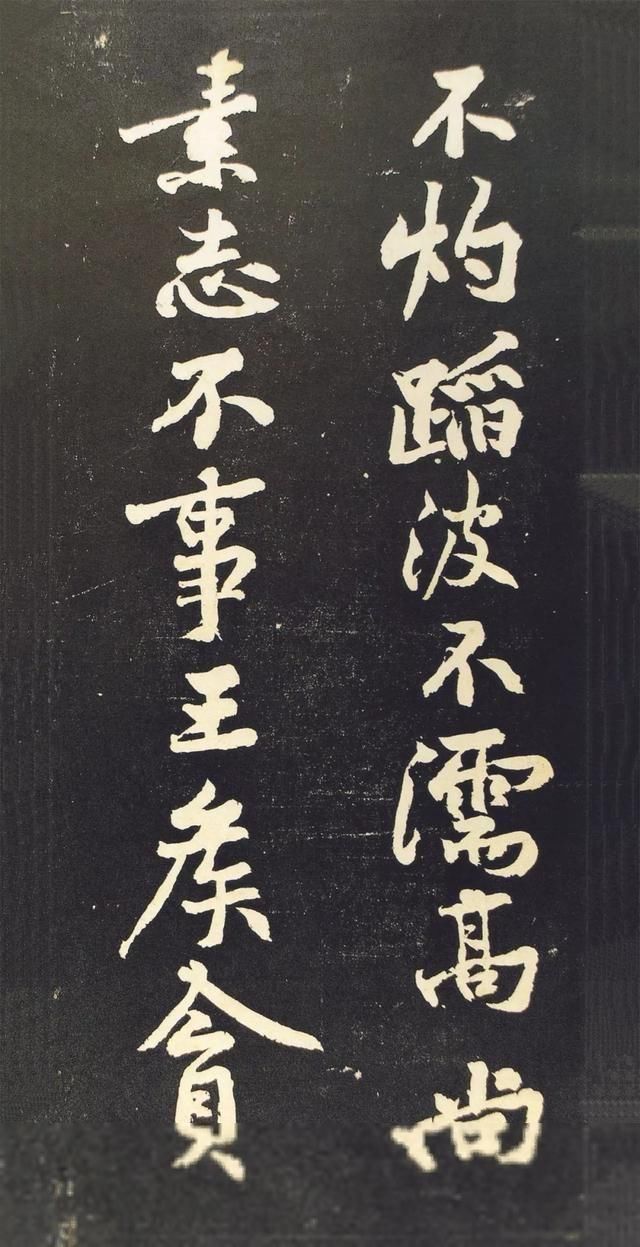 不灼蹈波不濡高尚
素志不事王侯貪